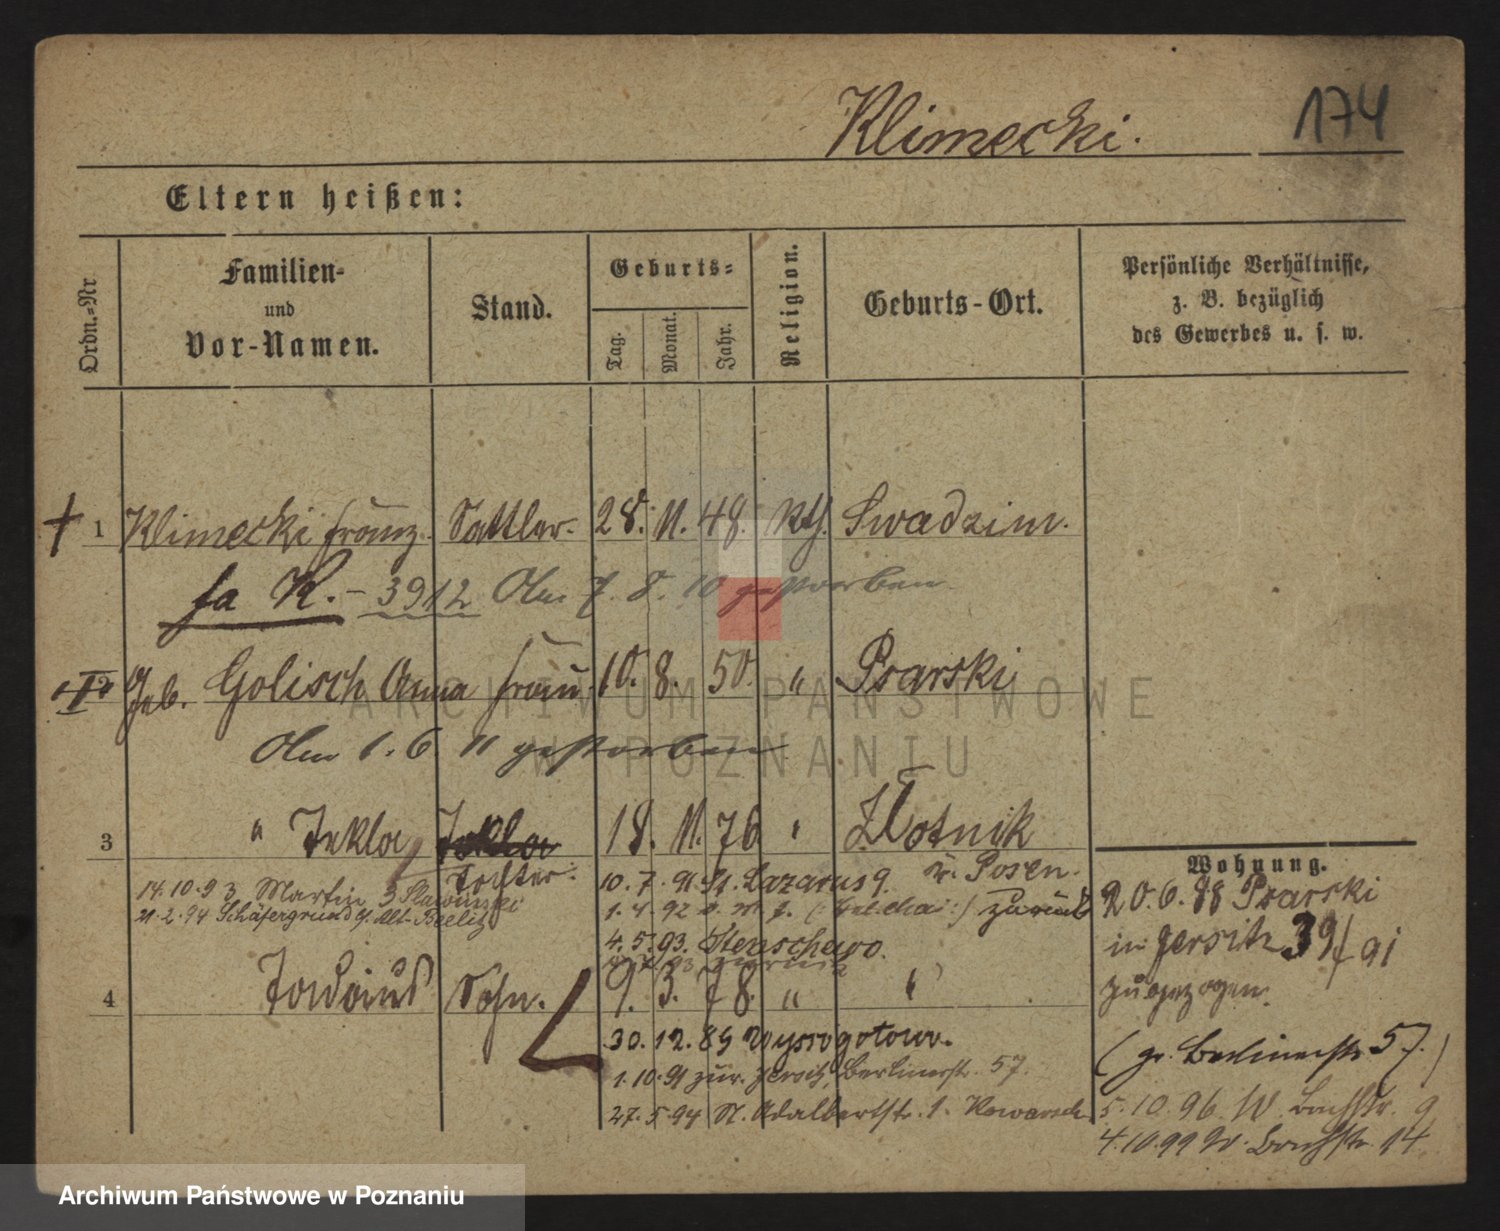 Klimecki. 174
Eltern heißen:
Ordn.-Nr
Familien-
und
Vor-Namen.
Stand.
Geburts-
Tag. Monat. Jahr.
Religion.
Geburts-Ort.
Persönliche Verhältnisse,
z. B. bezüglich
des Gewerbes u. s. w.
† 1 Klimecki Franz. Sattler. 28. 11. 48. Kth. Swadzim.
fa K. - 3912 Am 7. 8. 10 gestorben
Geb. Golisch Anna Frau 10. 8. 50. " Psarski
Am 1. 6 11 gestorben
ARCHIWUM PAŃSTWOWE
W POZNANIU
3 " Tekla Tekla 18. 11. 76 " Zlotnik
Tochter. Kr. Posen.
14.10.93 Martin
21.2.94 Schäfergrund Alt-Beelitz
10. 7. 91 St. Lazarus 9.
1. 4. 92 zurück
4. 5. 93. Stenschewo.
4 Sohn. 9. 3. 78. " "
30. 12. 89 Wyssogotowo.
1. 10. 91 zur. Jersitz, Berlinerstr. 57.
27. 5. 94 St. Adalbertstr. 1.
Wohnung.
20. 6. 88 Psarski
in Jersitz 39/91
zugezogen.
(gr. Berlinerstr. 57.)
5. 10. 96 W. Bachstr. 9
4. 10. 99 W. Bachstr. 14
Archiwum Państwowe w Poznaniu